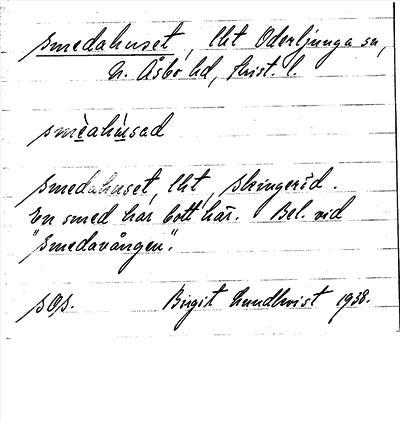 smedahuset, lht Oderljunga sn,
N. Åsbo hd, Krist. l.
smèahu̇sad
smedahuset, lht, Skingeröd.
En smed har bott här. Bel. vid
"Smedavången".
sOs. Birgit Lundkvist 1938.